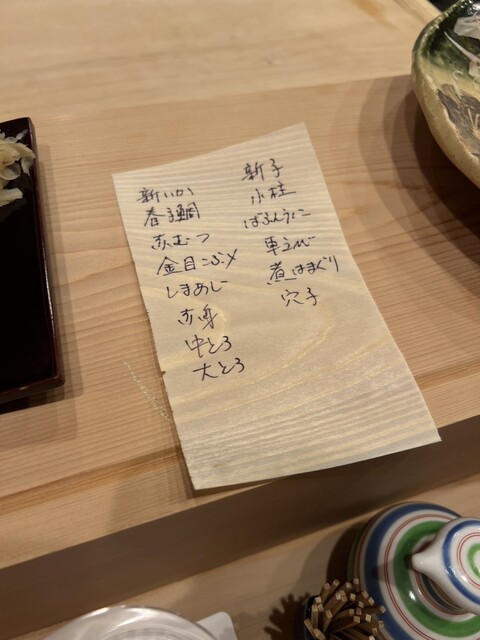 新いか
春子鯛
赤むつ
金目こぶ〆
しまあじ
赤身
中とろ
大とろ
新子
小柱
ばふんうに
車えび
煮はまぐり
穴子